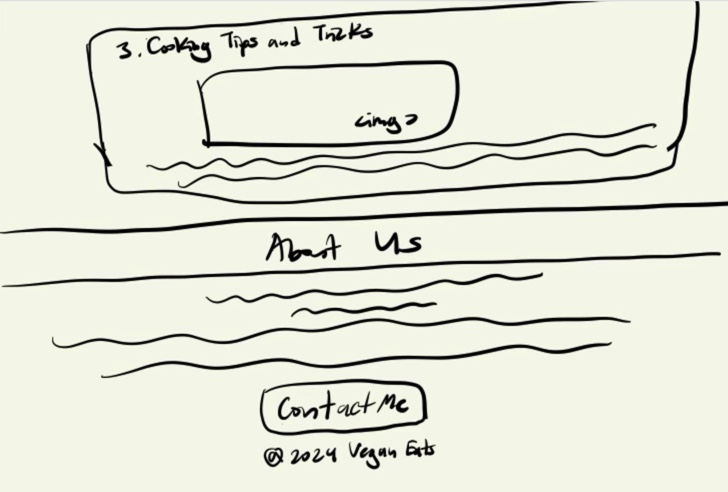 3. Cooking Tips and Tricks
<img>
About Us
Contact Me
@ 2024 Vegan Eats